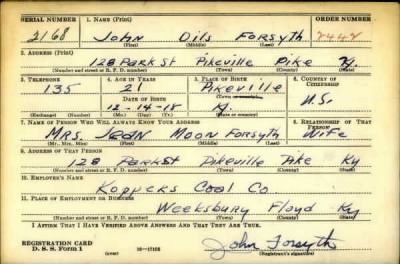 SERIAL NUMBER 1. NAME (Print) ORDER NUMBER
2168 John Oils Forsyth 2442
(First) (Middle) (Last)
2. ADDRESS (Print)
128 Park St Pikeville Pike Ky.
(Number and street or R. F. D. number) (Town) (County) (State)
3. TELEPHONE 4. AGE IN YEARS 5. PLACE OF BIRTH 6. COUNTRY OF CITIZENSHIP
135 21 Pikeville
(Town or county)
DATE OF BIRTH U.S.
12-14-18 Ky.
(Exchange) (Number) (Mo.) (Day) (Yr.) (State or country)
7. NAME OF PERSON WHO WILL ALWAYS KNOW YOUR ADDRESS 8. RELATIONSHIP OF THAT PERSON
Mrs. Jean Moon Forsyth Wife
(Mr., Mrs., Miss) (First) (Middle) (Last)
9. ADDRESS OF THAT PERSON
128 Park St Pikeville Pike Ky
(Number and street or R. F. D. number) (Town) (County) (State)
10. EMPLOYER'S NAME
Koppers Coal Co
11. PLACE OF EMPLOYMENT OR BUSINESS
Weeksbury Floyd Ky
(Number and street or R. F. D. number) (Town) (County) (State)
I AFFIRM THAT I HAVE VERIFIED ABOVE ANSWERS AND THAT THEY ARE TRUE.
REGISTRATION CARD
D. S. S. Form 1 (over) 16-17105 John Forsyth
(Registrant's signature)